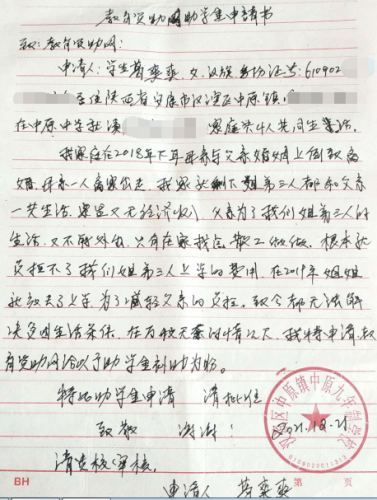 教育资助网助学金申请书
致：教育资助网：
申请人：学生 爽爽，女，汉族，身份证号：610902
家住陕西省安康市汉滨区中原镇，
在中原中学就读 家庭共4人共同生活。
我家庭在2018年下年母亲与父亲婚姻上倒致离
婚，母亲一人离家出走，我家就剩下姐弟三人都和父亲
一共生活，家里又无经济收入，父亲为了我们姐弟三人的
生活，又不能外出，只有在家找点散工做做，根本就
负担不了我们姐弟三人上学的费用，在2019年姐姐
就放去了上学为了减轻父亲的负担，致今都无法解
决贫困生活条件，在万般无奈的情况下，我特申请，教
育资助网给以于助学金补助为盼。
特此助学金申请 请批准
致敬 谢谢！
请贵校审核。
2021.12.21
申请人 爽爽
汉滨区中原镇中原九年制学校
BH
第 页